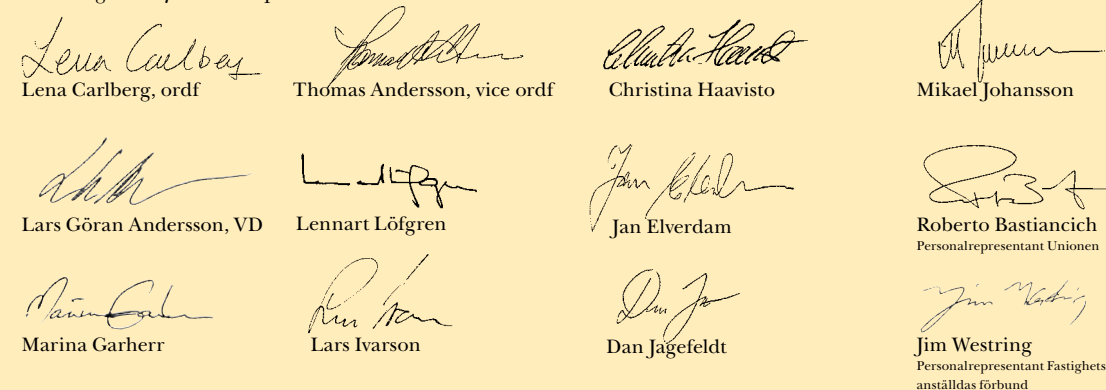 Lena Carlberg
Lena Carlberg, ordf
Thomas Andersson, vice ordf
Christina Haavisto
Mikael Johansson
Lars Göran Andersson, VD
Lennart Löfgren
Jan Elverdam
Roberto Bastiancich
Personalrepresentant Unionen
Marina Garherr
Lars Ivarson
Dan Jagefeldt
Jim Westring
Jim Westring
Personalrepresentant Fastighets
anställdas förbund